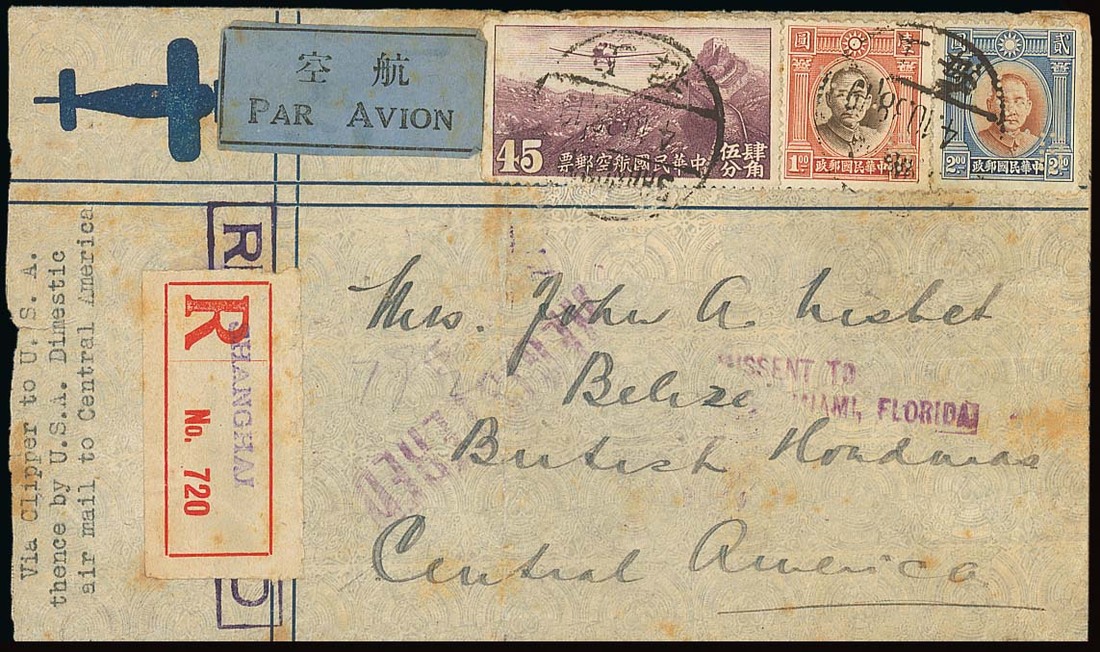 航 空
PAR AVION
45
中華民國航空郵票
肆角
伍分
圓 壹
1.00
中華民國郵政
圓 貳
2.00 2.00
中華民國郵政
4.10.38.19
Via Clipper to U. S. A.
thence by U.S.A. Dimestic
air mail to Central America
R
SHANGHAI
No. 720
R
D
Mrs. John A Nisbet
Belize
British Honduras
Central America
MISSENT TO
MIAMI, FLORIDA
REGISTERED